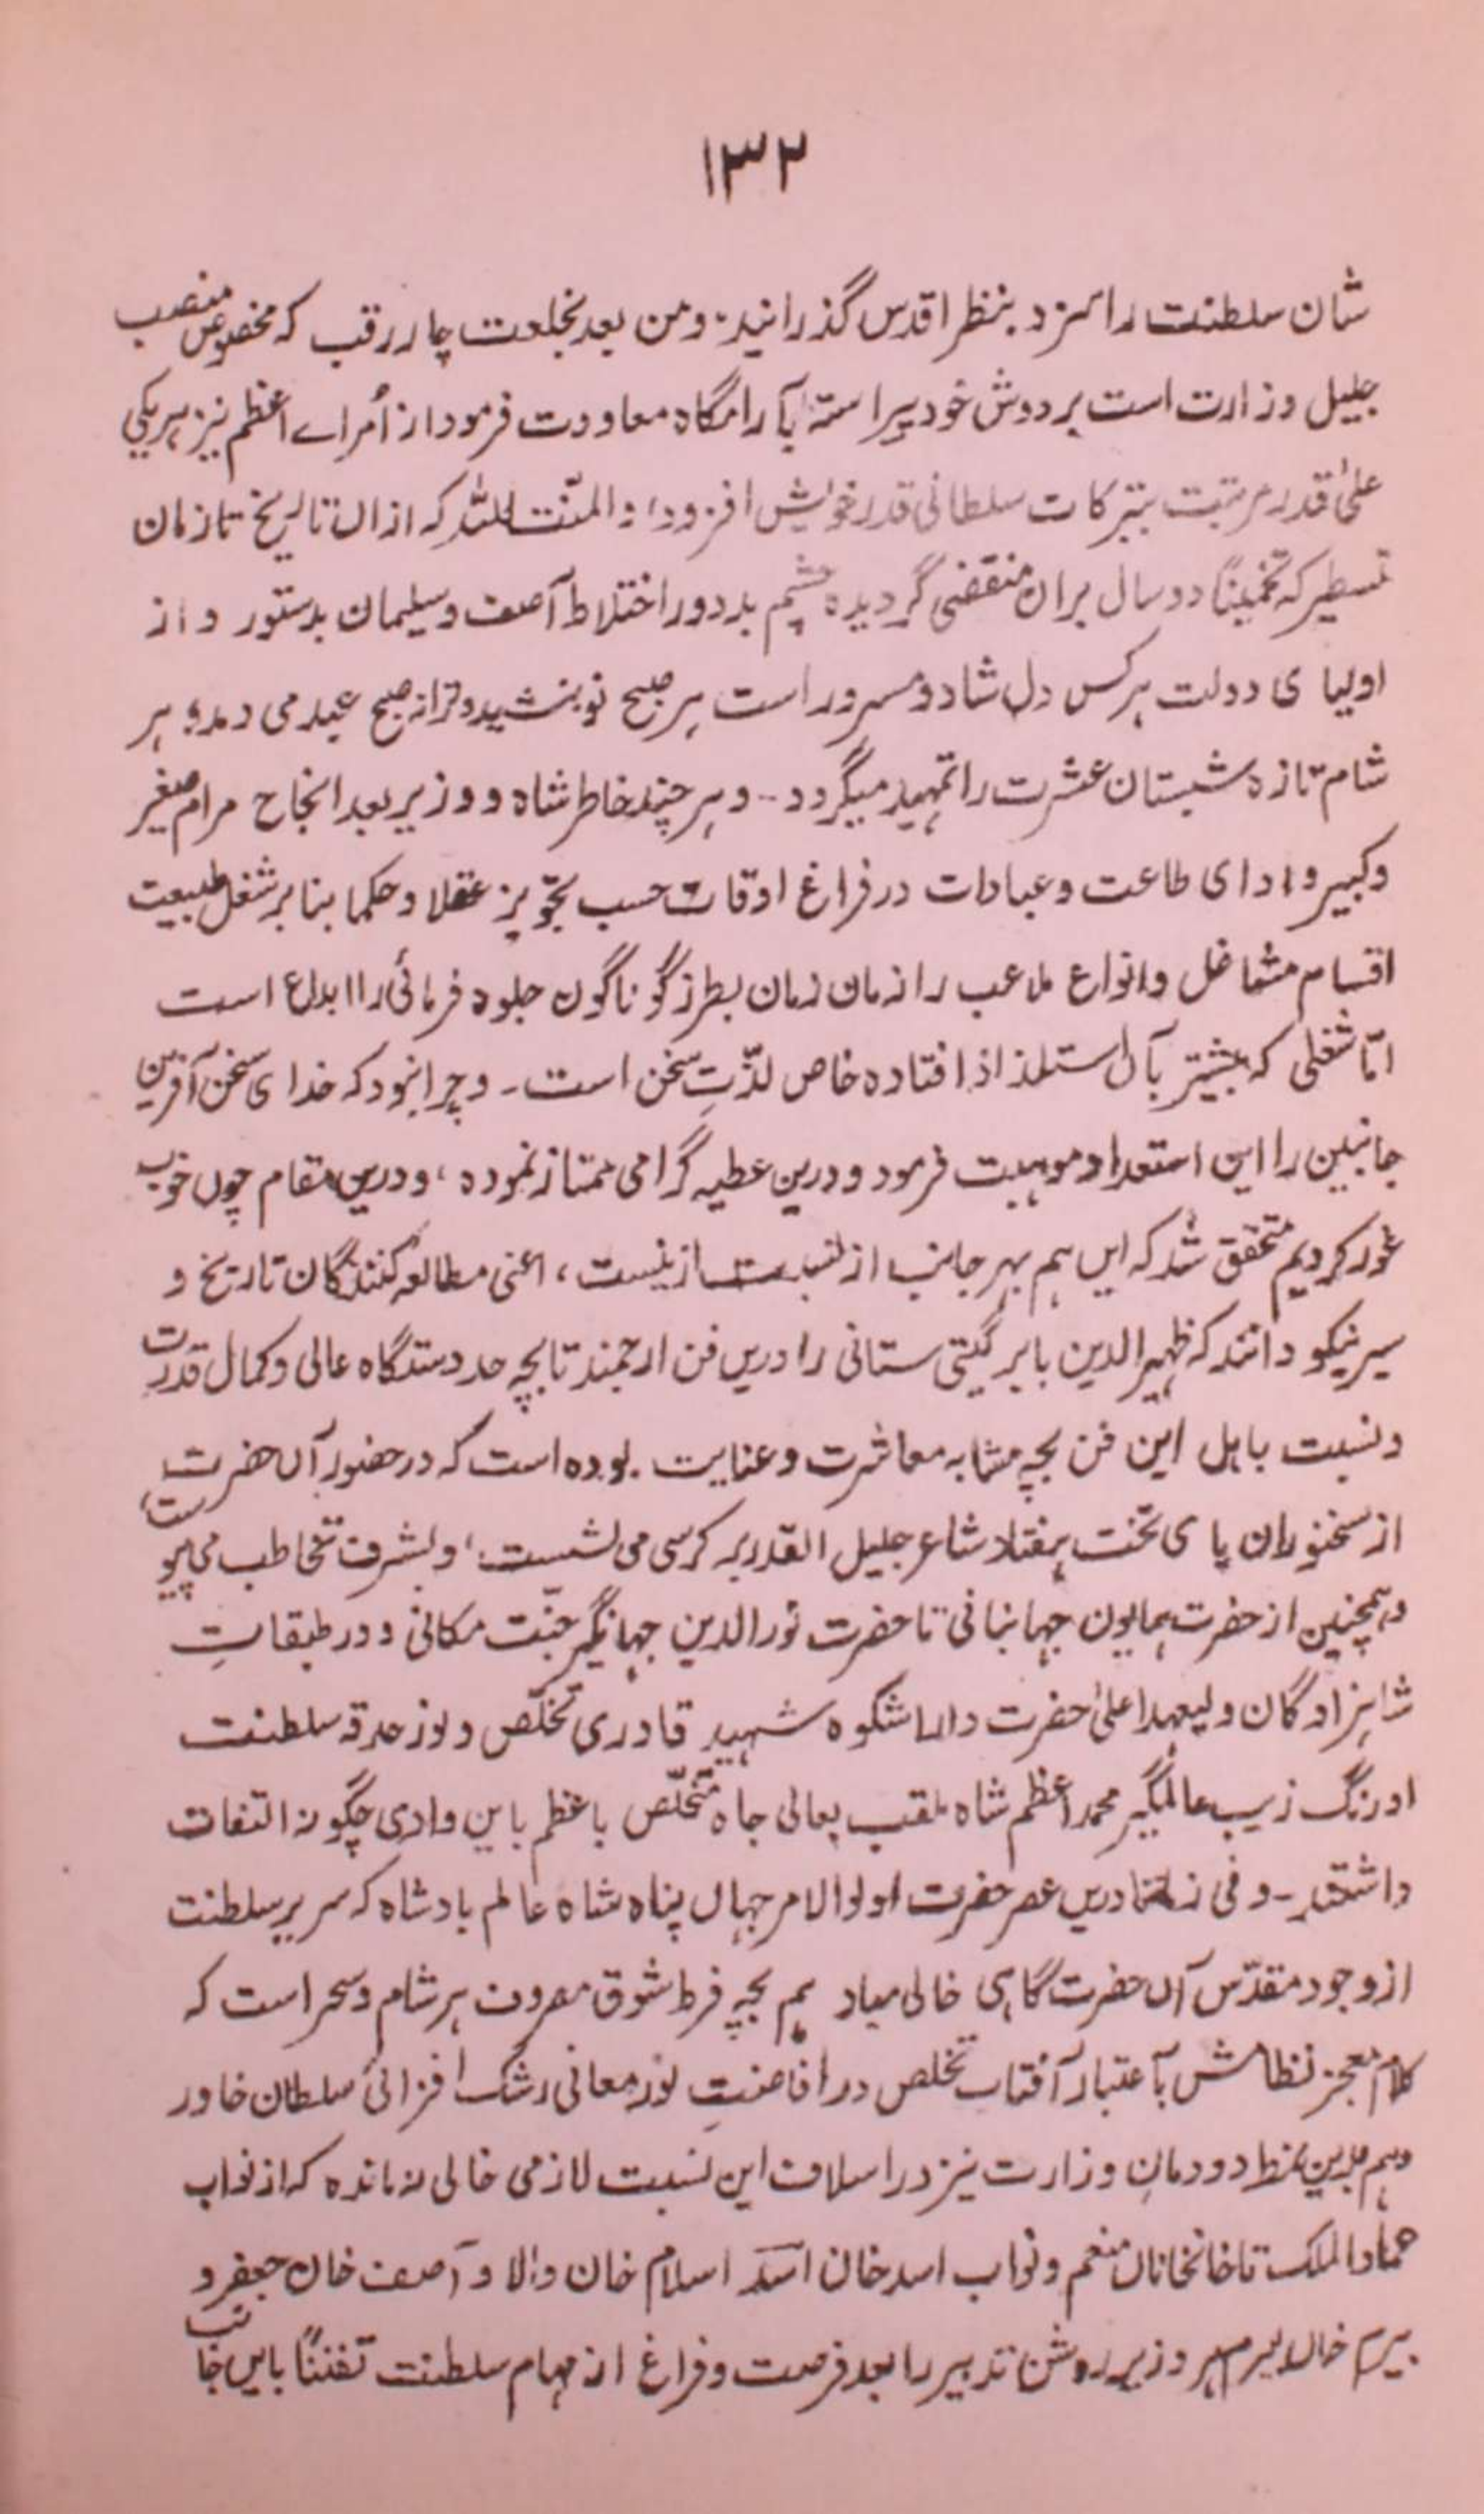 ۱۳۲
شان سلطنت را سزد بنظر اقدس گذرانید، ومن بعد بخلعت چارقب که مخصوص منصب
جلیل وزارت است بر دوش خود پیراسته بآرامگاه معاودت فرمود از اُمراے اعظم نیز ہریکی
علیٰ قدر مرتبت بتبرکات سلطانی قدر خویش افزود، و المنّت للہ کہ ازاں تاریخ تا زمان
تسطیر کہ تخمیناً دو سال بران منقضی گردیدہ چشم بد دور اختلاط آصف وسلیمان بدستور و از
اولیا ی دولت ہرکس دل شاد و مسرور است ہر صبح نو بنشید وترانہ صبح عید می دمد و ہر
شام تازہ شبستان عشرت را تمہید میگردد۔ و ہر چند خاطر شاہ و وزیر بعد انجاح مرام صغیر
وکبیر و ادا ی طاعت وعبادات در فراغ اوقات حسب تجّویز عقلا وحکما بنابر شغل طبیعت
اقسام مشاغل وانواع ملاعب را زمان زمان بطرز گوناگوں جلوہ فرمائی را ابداع است
امّا شغلی کہ بیشتر بآں استلذاذ افتادہ خاص لذّتِ سخن است۔ و چرا نبود کہ خدا ی سخن آفرین
جانبین را این استعداد موہبت فرمود و درین عطیہ گرامی ممتاز نمودہ، و درین مقام چوں خوب
غور کردیم متحقق شد کہ ایں ہم بہر جانب از نسبت ازلیست، اعنی مطالعہ کنندگان تاریخ و
سیر نیکو دانند کہ ظہیر الدین بابر گیتی ستانی را دریں فن ارجمند تا بچہ حد دستگاہ عالی وکمال قدرت
و نسبت باہل این فن بچہ مثابہ معاشرت و عنایت بودہ است کہ در حضور آں حضرت
از سخنوران پا ی تخت ہفتاد شاعر جلیل القدر بر کرسی می نشست، و بشرف تخاطب می پیوست،
وہمچنین از حضرت ہمایون جہانبانی تا حضرت نور الدین جہانگیر جنّت مکانی و در طبقاتِ
شاہزادگان ولیعہد اعلیٰ حضرت دارا شکوہ شہید قادری تخلّص و نور حدقہ سلطنت
اورنگ زیب عالمگیر محمد اعظم شاہ ملقب بعالی جاہ متخلّص باعظم باین وادی چگونہ التفات
داشتند۔ و فی زماننا دریں عصر حضرت اولوالامر جہاں پناہ شاہ عالم بادشاہ کہ سریر سلطنت
از وجود مقدّس آں حضرت گاہی خالی مباد ہم بچہ فرط شوق مصروف ہر شام وسحر است کہ
کلام معجز نظامش بآعتبار آفتاب تخلص در افاضتِ نور معانی رشک افزائی سلطان خاور
وہم بدین نمط دودمانِ وزارت نیز در اسلاف این نسبت لازمی خالی نماندہ کہ از نواب
عماد الملک تا خانخاناں منعم و نواب اسد خان اسد اسلام خان والا و آصف خاں جعفر و
بیرم خاں بیرم ہر وزیر روشن تدبیر را بعد فرصت وفراغ از مہام سلطنت تفنناً بایں جانب